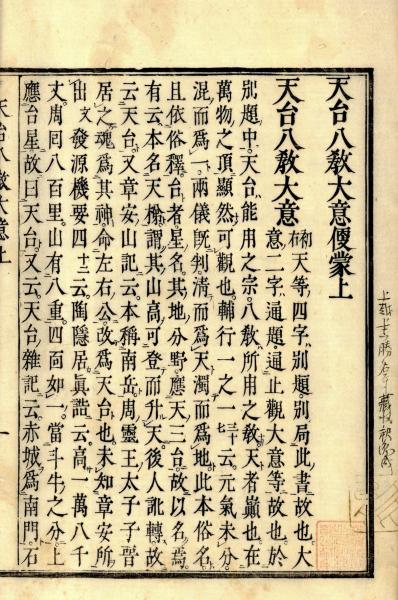 天台八敎大意儓蒙上
天台八敎大意 初有天等四字別題別局此書故也大
意二字通題通止觀大意等故也於
別題中天台能用之宗八敎所用之敎天者巓也在
萬物之頂顯然可觀也輔行一之一七三十云元氣未分
混而爲一兩儀旣判淸而爲天濁而爲地此本俗名
且依俗釋台者星名其地分野應天三台故以名焉
有云本名天梯謂其山高可登而升天後人訛轉故
云天台又章安山記云本稱南岳周靈王太子子晉
居之魂爲其神命左右公改爲天台也未知章安所
出文發源機要四十三云陶隱居眞誥云高一萬八千
丈周回八百里山有八重四面如一當斗牛之分上
應台星故曰天台又云天台雜記云赤城爲南門石
天台八敎大意上
一